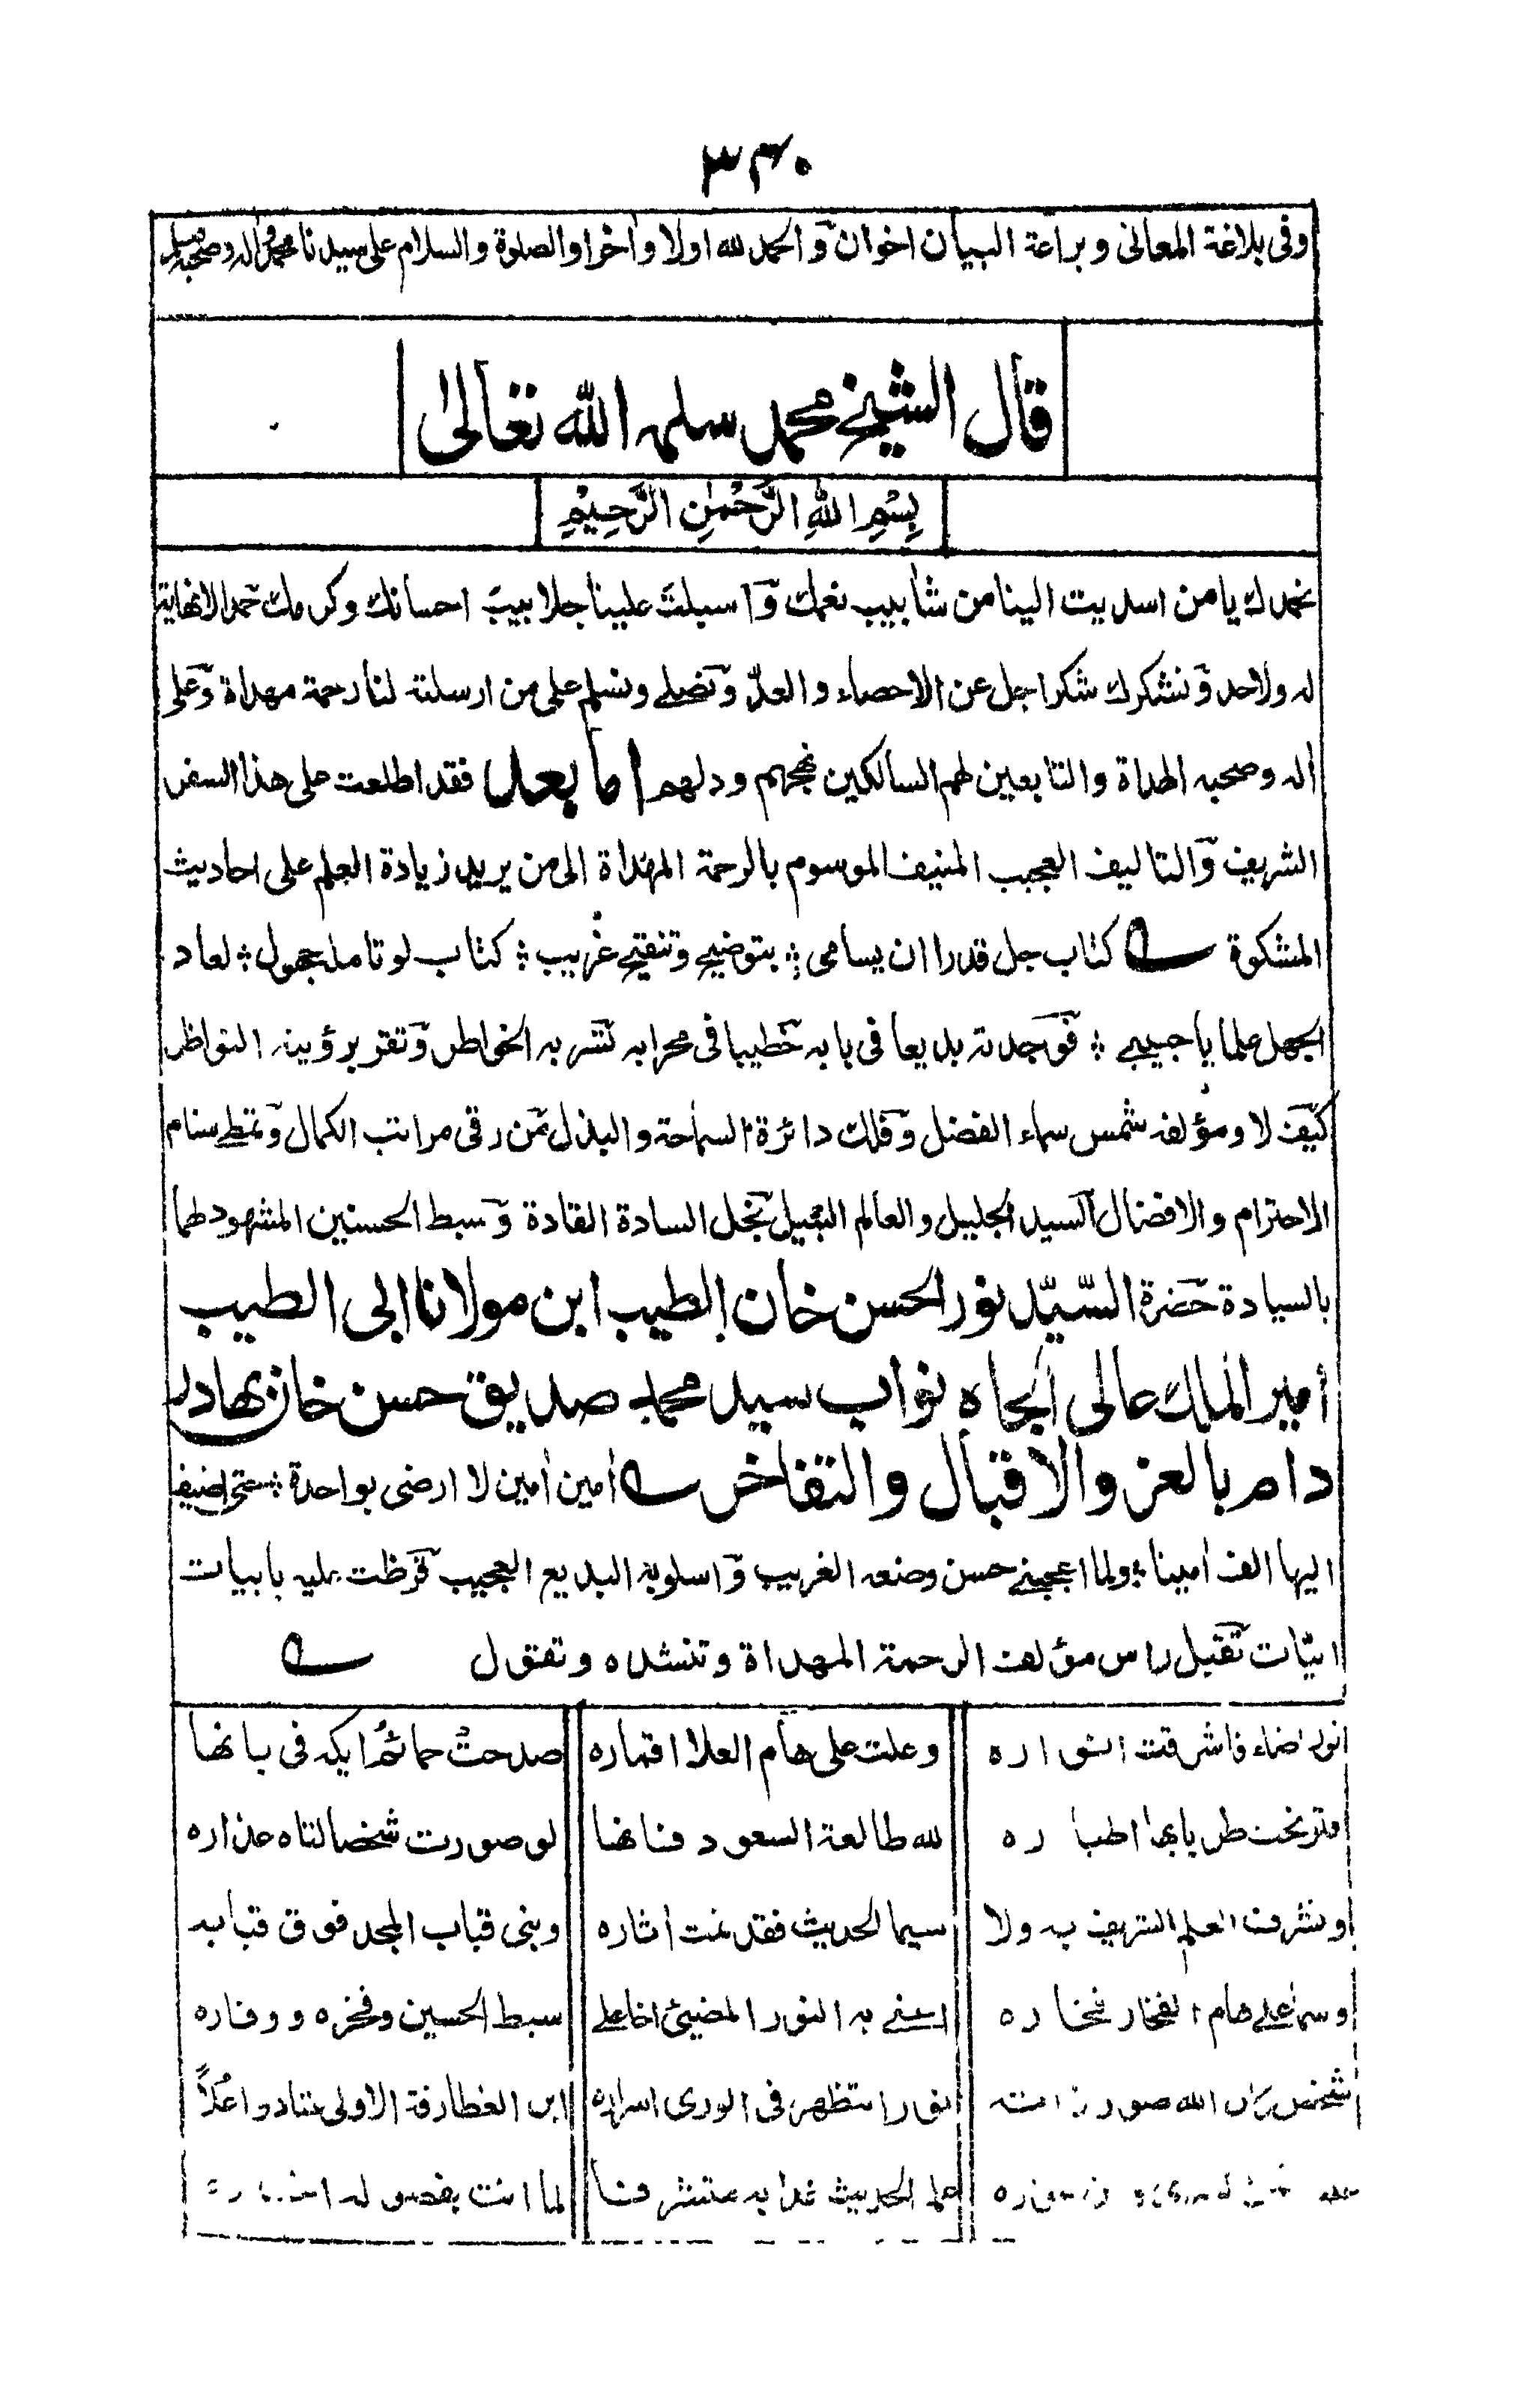 ٣٤٠
وفي بلاغة المعاني وبراعة البيان اخوان والحمد لله اولا واخرا والصلوة والسلام على سيدنا محمد واله وصحبه وسلم
قال الشيخ محمد سلمه الله تعالى
بِسْمِ اللهِ الرَّحْمٰنِ الرَّحِيْمِ
نحمدك يا من اسديت الينا من شابيب نعمك واسبلت علينا جلابيب احسانك وكرمك حمدا لا نهاية
له ولا حد ونشكرك شكرا جل عن الاحصاء والعدّ ونصلے ونسلم على من ارسلته لنا رحمة مهداة وعلى
اله وصحبه الهداة والتابعين لهم السالكين نهجهم ودلهم اما بعد فقد اطلعت على هذا السفر
الشريف والتاليف العجيب المنيف الموسوم بالرحمة المهداة الى من يريد زيادة العلم على احاديث
المشكوة ؎ كتاب جل قدرا ان يسامى ؛ بتوضيح وتنقيح غريب ؛ كتاب لو تامله جهول ؛ لعاد
الجهل علما يا حبيبے ؛ فوجدته بديعا في بابه خطيبا في محرابه تسر به الخواطر وتقر برؤيته النواظر
كيف لا ومؤلفه شمس سماء الفضل وفلك دائرة السماحة والبذل من رقى مراتب الكمال وتمطے سنام
الاحترام والافضال السيد الجليل والعالم النبيل نجل السادة القادة وسبط الحسنين المشهود لهما
بالسيادة حضرة السّيّد نور الحسن خان الطيب ابن مولانا ابى الطيب
امير الملك عالى الجاه نواب سيد محمد صديق حسن خان بهادر
دام بالعز والاقبال والتفاخر ؎ امين امين لا ارضى بواحدة ؛ حتى اضيف
اليها الف امينا ؛ ولما اعجبنے حسن وضعه الغريب واسلوبه البديع العجيب قرظت عليه بابيات
ابيّات تقبل راس مؤلف الرحمة المهداة وتنشده وتقول ؎
نور اضاء فاشرقت انواره وعلت على هام العلا اقماره صدحت حمائم ايكه في بانها
فترنحت طربا بها اطياره لله طالعة السعود فانها لو صورت شخصا لتاه عذاره
وتشرف العلم الشريف به ولا سيما الحديث فقد نمت اثاره وبنى قباب المجد فوق قبابه
وسما علے هام الفخار فخاره اعنے به النور المضيئ اخا علے سبط الحسين وفخره ووقاره
شخص كان الله صور ذاته نورا لتظهر في الورى اسراره ابن الغطارفة الاولى شادوا عُلاً
علم الحديث غدا به متشرفا لما اتت